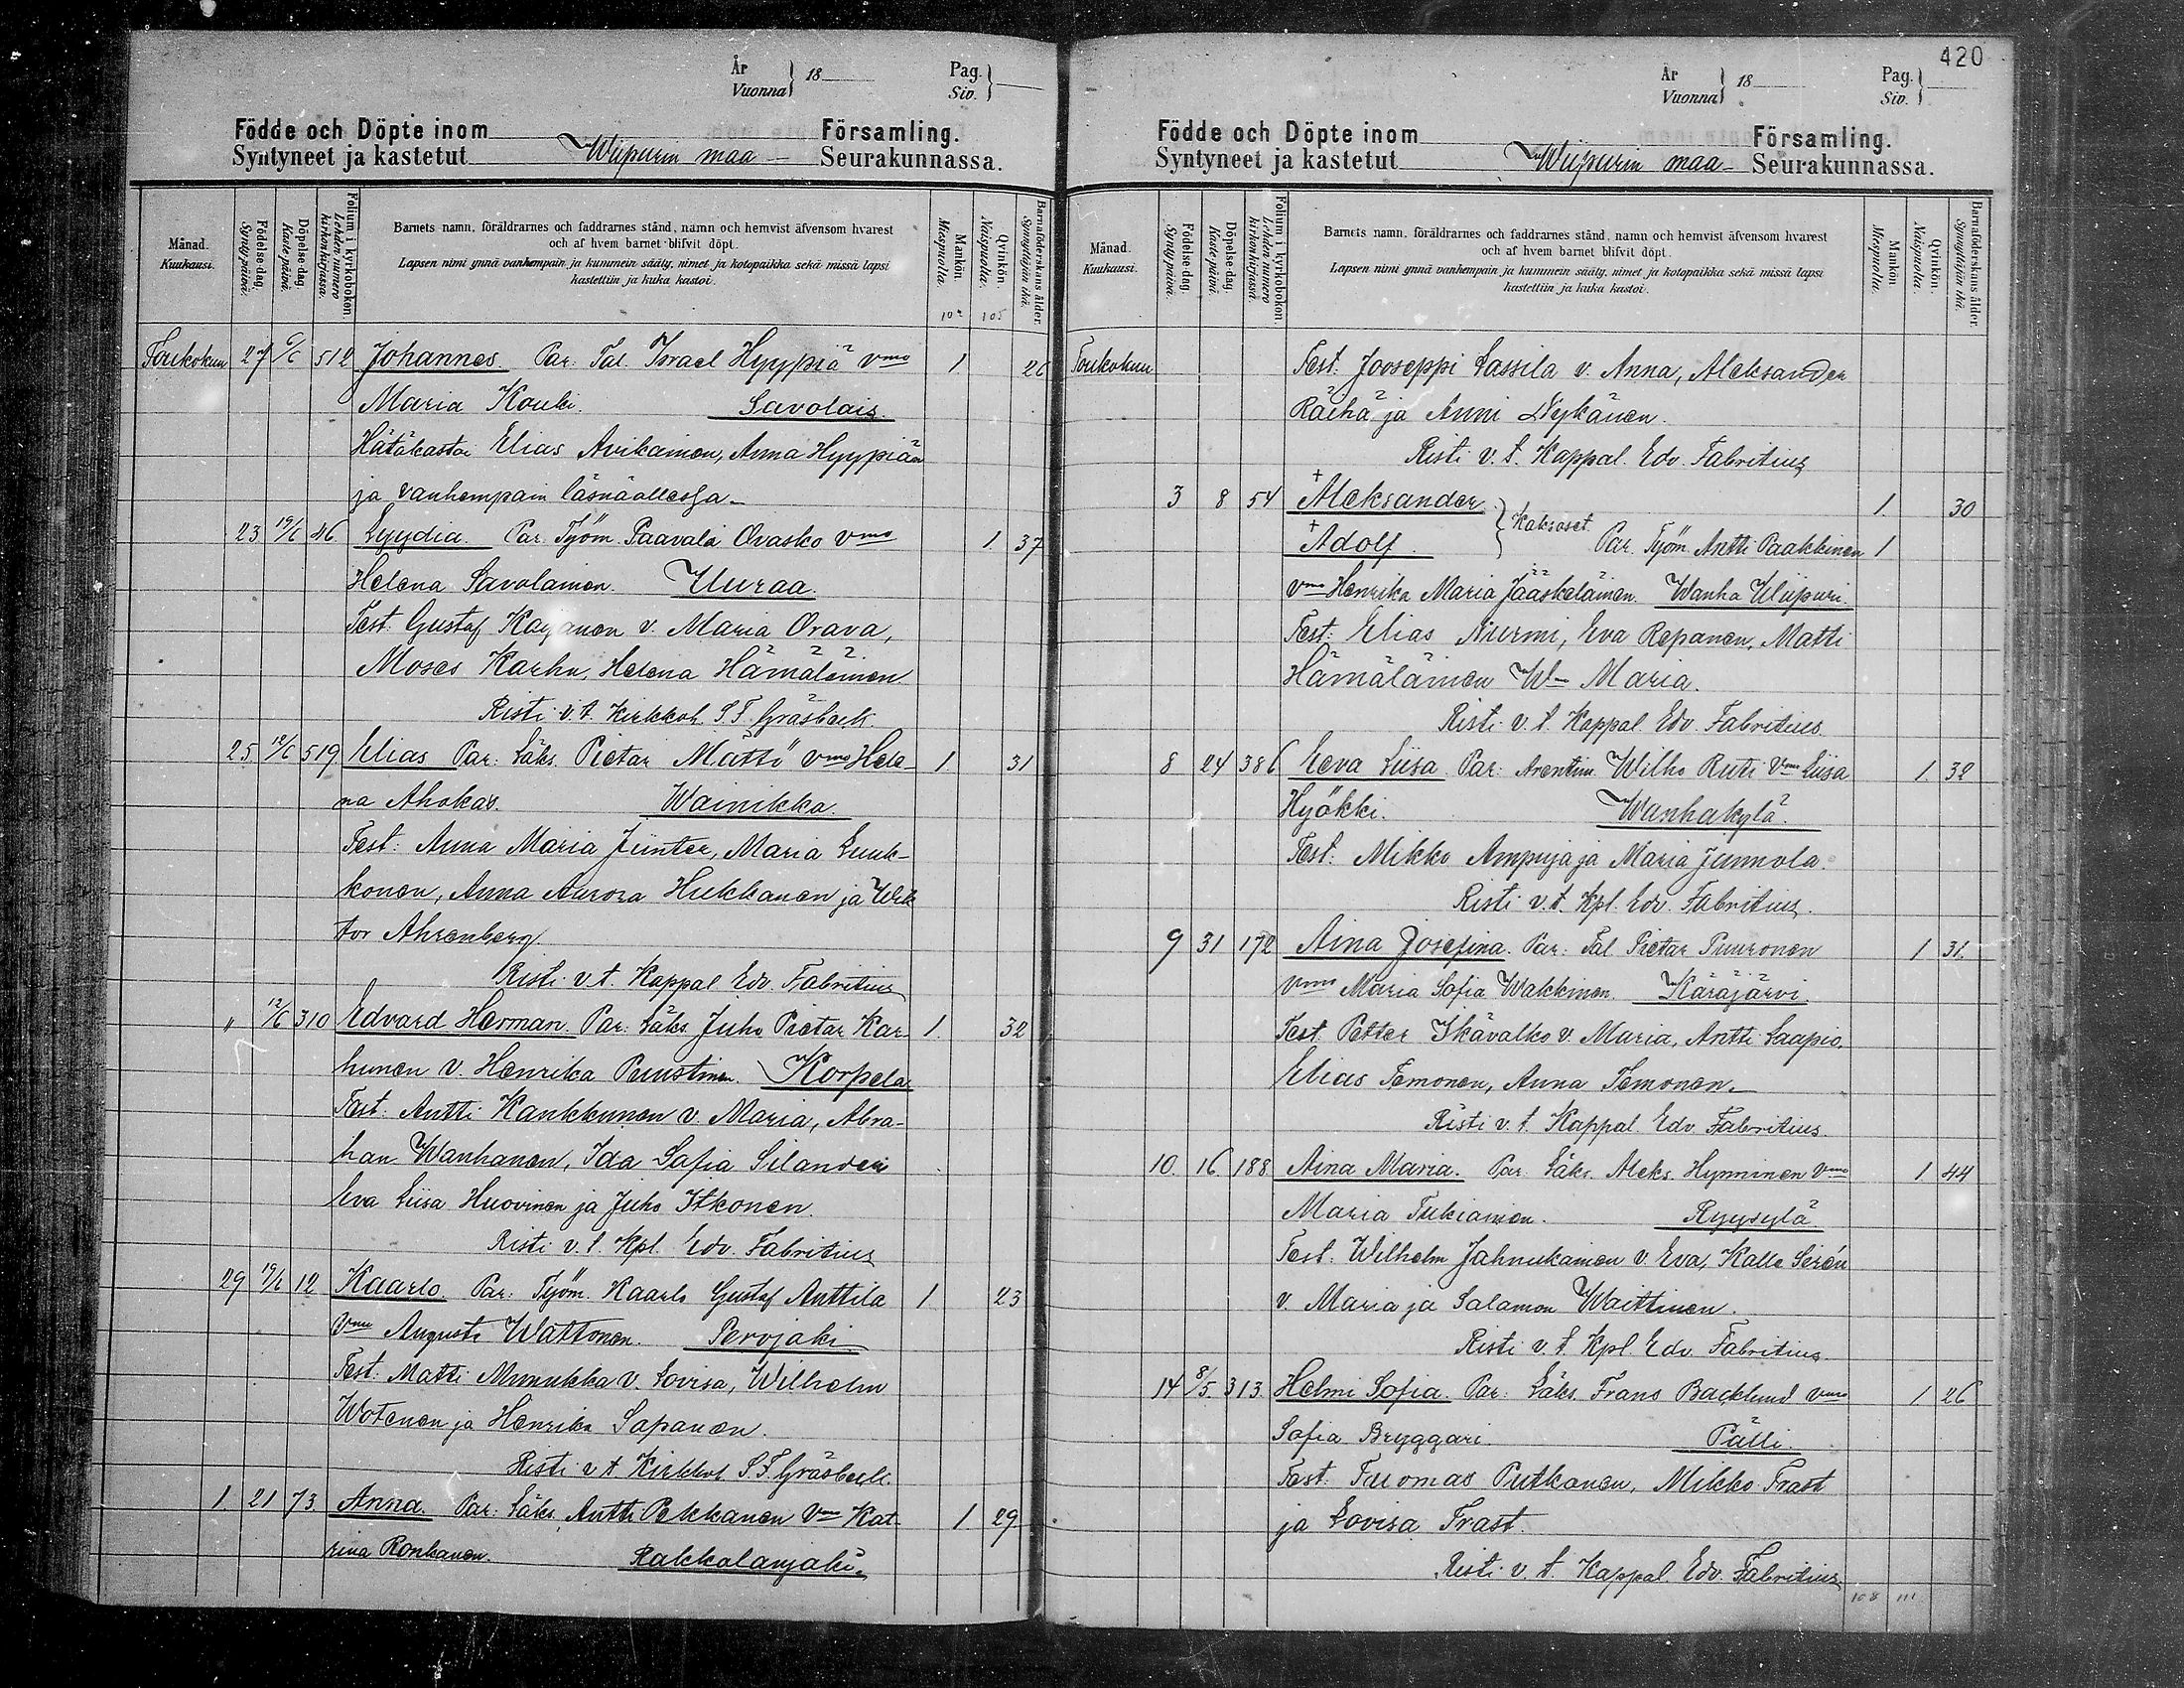 År
Vuonna } 18
Pag.
Siv. }
Födde och Döpte inom Församling.
Syntyneet ja kastetut Wiipurin maa- Seurakunnassa.
Månad.
Kuukausi.
Födelse-dag.
Synty-päivä.
Döpelse-dag.
Kaste-päivä.
Folium i kyrkoboken.
Lehden numero kirkonkirjassa.
Barnets namn, föräldrarnes och faddrarnes stånd, namn och hemvist äfvensom hvarest
och af hvem barnet blifvit döpt.
Lapsen nimi ynnä vanhempain ja kummein sääty, nimet ja kotopaikka sekä missä lapsi
kastettiin ja kuka kastoi.
Mankön.
Miespuolia.
Qvinkön.
Naispuolia.
Barnaföderskans ålder.
Synnyttäjän ikä.
105
Toukokuu 27 6/6 512 Johannes. Par: Tal. Israel Hyyppiä vmo 1 26
Maria Kouki. Savolais.
Hätäkastoi Elias Avikainen, Anna Hyyppiän
ja vanhempain läsnäollessa.
23 19/6 46. Lyydia. Par. Työm. Paavala Ovasko vmo 1. 37
Helena Savolainen. Uuraa.
Test. Gustaf v. Maria Orava,
Moses Karhu, Helena Hämäläinen
Risti v.t. Kirkkoh. S F. Gräsbeck.
25. 12/6 519 Elias Par: Läks. Pietar Mättö vmo Hele- 1. 31
na Ahokas. Wainikka.
Test: Anna Maria Jünter, Maria Luuk-
konen, Anna Aurora Hukkanen ja Wik
tor Ahrenberg.
Risti v.t. Kappal Edv. Fabritius
" 12/6 310 Edvard Herman. Par: Läks. Juho Pietar Kar- 1. 32
hunen v. Henrika Puustinen. Korpela
Test: Antti Kankkunen v. Maria, Abra-
ham Wanhanen, Ida Sofia Silander
Eva Liisa Huovinen ja Juho Itkonen.
Risti v.t. Kpl. Edv. Fabritius
29 19/6 12 Kaarlo. Par: Työm. Kaarlo Gustaf Anttila 1 23
vmo Augusta Wattonen. Pervojoki
Test: Matti Mumukka v. Lovisa, Wilhelm
Wotenen ja Henrika Sapanen.
Risti v.t Kirkkoh S.F. Gräsbeck.
1. 21 73. Anna. Par: Läks. Antti Pekkanen vmo Kat- 1. 29
rina Ronkanen. Rakkolanjoki.
420
År
Vuonna } 18
Pag.
Siv. }
Födde och Döpte inom Församling.
Syntyneet ja kastetut Wiipurin maa- Seurakunnassa.
Månad.
Kuukausi.
Födelse-dag.
Synty-päivä.
Döpelse-dag.
Kaste-päivä.
Folium i kyrkoboken.
Lehden numero kirkonkirjassa.
Barnets namn, föräldrarnes och faddrarnes stånd, namn och hemvist äfvensom hvarest
och af hvem barnet blifvit döpt.
Lapsen nimi ynnä vanhempain ja kummein sääty, nimet ja kotopaikka sekä missä lapsi
kastettiin ja kuka kastoi.
Mankön.
Miespuolia.
Qvinkön.
Naispuolia.
Barnaföderskans ålder.
Synnyttäjän ikä.
Toukokuu Test. Jooseppi Lassila v. Anna, Aleksander
Räihä ja Anni Nykänen.
Risti v.t. Kappal. Edv. Fabritius
3 8 54 † Aleksander 1. 30
† Adolf. } Kaksoset. Par. Työm. Antti Paakkinen 1
vmo Henrika Maria Jääskeläinen. Wanha Wiipuri.
Test: Elias Nurmi, Eva Repanen, Matti
Hämäläinen W- Maria.
Risti v.t. Kappal. Edv. Fabritius.
8 24 386 Eeva Liisa. Par: Arentim. Wilho Ruti vmo Liisa 1. 32
Hyökki. Wanhakylä.
Test: Mikko Ampuja ja Maria Junnola.
Risti v.t. Kpl. Edv. Fabritius.
9 31 172 Aina Josefina. Par: Tal Pietar Puuronen 1 31.
vmo Maria Sofia Wakkinen. Käräjärvi.
Test. Petter Ikävalko v. Maria, Antti Saapio.
Elias Temonen, Anna Temonen.
Risti v.t. Kappal. Edv. Fabritius.
10. 16. 188 Aina Maria. Par. Läks. Aleks. Hynninen vmo 1 44
Maria Tukiainen. Ryysylä.
Test: Wilhelm Jahnukainen v. Eva, Kalle Serén
v. Maria ja Salamon Waittinen.
Risti v.t. Kpl. Edv. Fabritius.
14 8/5. 313. Helmi Sofia. Par: Läks. Frans Backlund vmo 1 26
Sofia Bryggari. Pälli.
Test: Tuomas Putkonen, Mikko Trast
ja Lovisa Trast.
Risti v.t. Kappal. Edv. Fabritius.
108 111